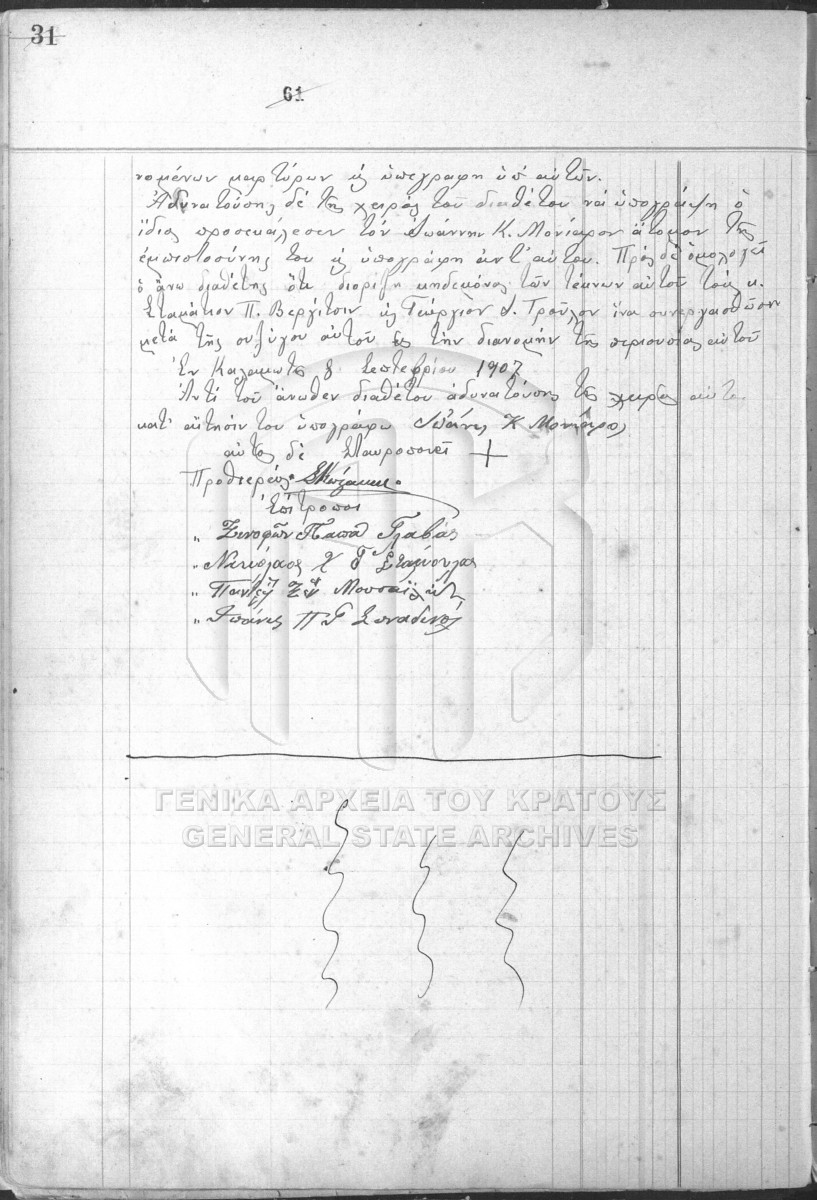 31
61
νομένων μαρτύρων κ ὑπεγράφη ὑπ' αὐτῶν.
Ἀδυνατούσης δὲ τῆς χειρὸς τοῦ διαθέτου νὰ ὑπογράψη ὁ
ἴδιος προσεκάλεσεν τὸν Ἰωάννην Κ. Μονιάρον ἄτομον τῆς
ἐμπιστοσύνης του κ ὑπογράφη ἀντ' αὐτοῦ. Πρὸς δὲ ὁμολογεῖ
ὁ ἄνω διαθέτης ὅτι διορίζη κηδεμόνας τῶν τέκνων αὐτοῦ τοὺς κ.
Σταμάτιον Π. Βεργίτσιν κ Γεώργιον Ι. Τροῦλον ἵνα συνεργασθῶσιν
μετὰ τῆς συζύγου αὐτοῦ εἰς τὴν διανομὴν τῆς περιουσίας αὐτοῦ
Ἐν Καλαμωτῇ 8 Σεπτεβρίου 1907
Ἀντὶ τοῦ ἄνωθεν διαθέτου ἀδυνατούσης τῆς χειρὸς αὐτοῦ
κατ' αἴτησίν του ὑπογράφω Ἰωάνης Κ Μονιάρος
αὐτὸς δὲ σταυροποιεῖ +
Πρωθιερεὺς
ἐπίτροποι
" Ξενοφῶν Παπᾶ Γλαβᾶς
" Νικόλαος Χ Γ
" Παντελῆ Ξεν
" Ἰωάνης Π Γ
ΓΕΝΙΚΑ ΑΡΧΕΙΑ ΤΟΥ ΚΡΑΤΟΥΣ
GENERAL STATE ARCHIVES